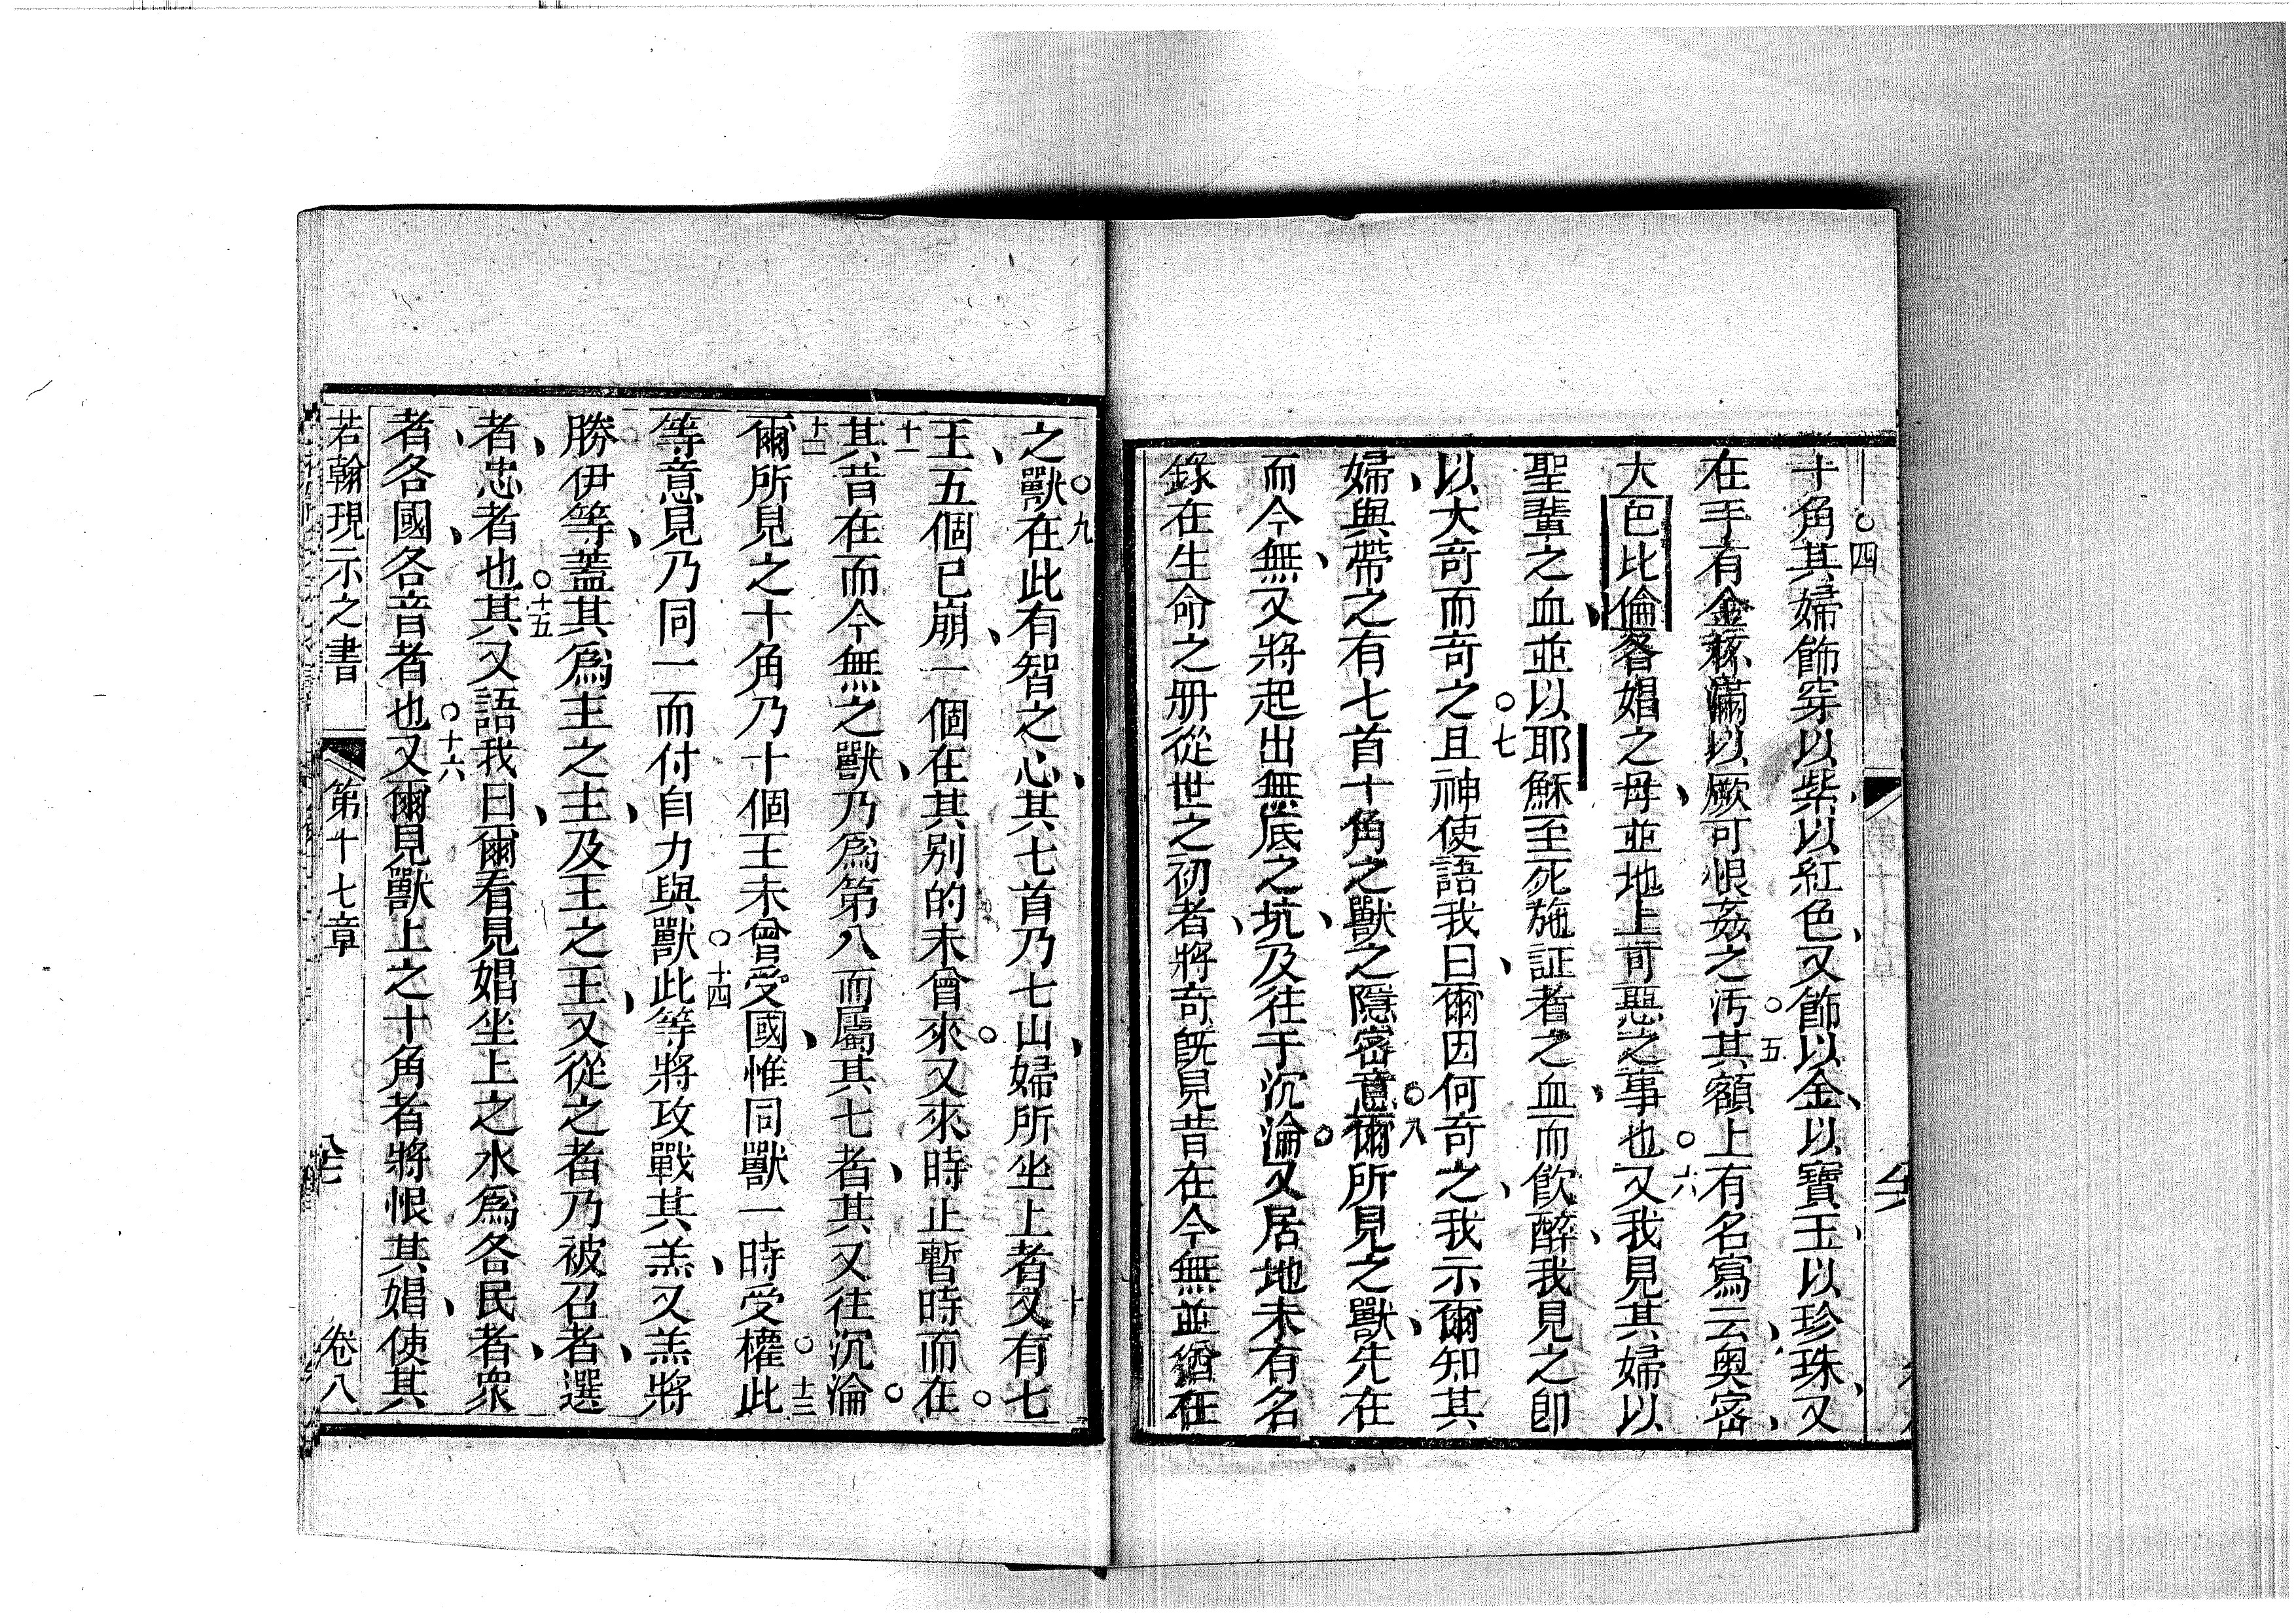 十角其婦飾穿以紫以紅色又飾以金以寶玉以珍珠又
在手有金盃滿以厥可恨姦之污其額上有名寫云奥密
大巴比倫各娼之母並地上可惡之事也又我見其婦以
聖輩之血並以耶穌至死施証者之血而飲醉我見之卽
以大奇而奇之且神使語我曰爾因何奇之我示爾知其
婦與帶之有七首十角之獸之隱密意爾所見之獸先在
而今無又將起出無底之坑及往于沉淪又居地未有名
錄在生命之册從世之初者將奇旣見昔在今無並猶在
之獸在此有智之心其七首乃七山婦所坐上者又有七
王五個已崩一個在其别的未曾來又來時止暫時而在
其昔在而今無之獸乃爲第八而屬其七者其又往沉淪
爾所見之十角乃十個王未曾受國惟同獸一時受權此
等意見乃同一而付自力與獸此等將攻戰其羔又羔將
勝伊等蓋其爲主之主及王之王又從之者乃被召者選
者忠者也其又語我曰爾看見娼坐上之水爲各民者衆
者各國各音者也又爾見獸上之十角者將恨其娼使其
若翰現示之書 第十七章 卷八
〇四
〇五
〇六
〇七
〇八
〇九
十
十一
十二
〇十三
〇十四
〇十五
〇十六